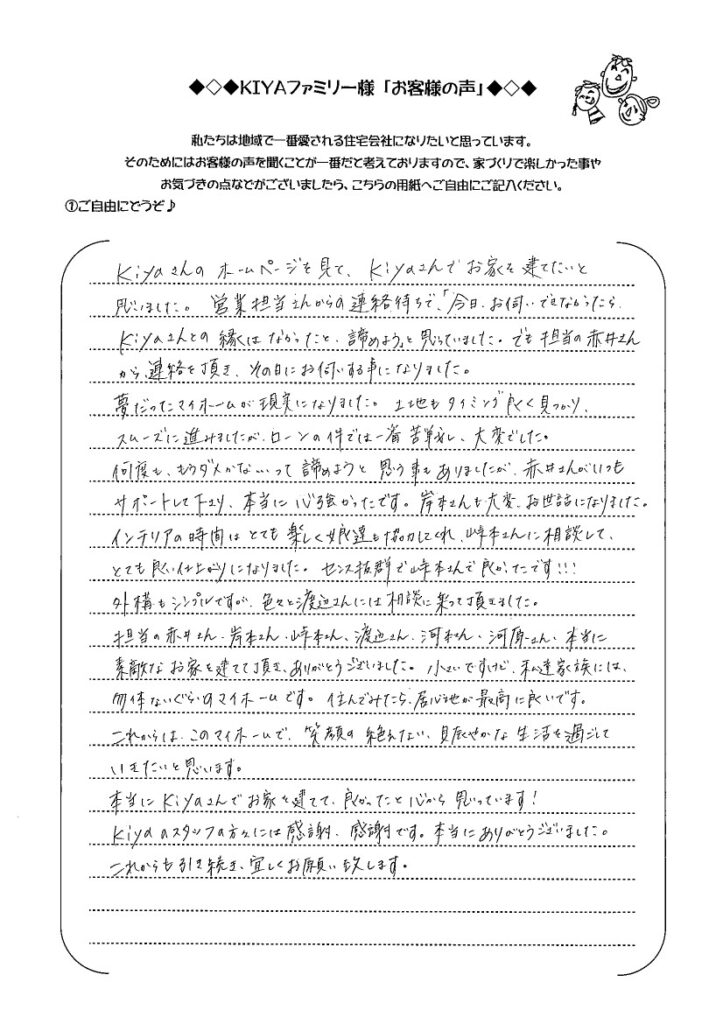 ◆◇◆KIYAファミリー様「お客様の声」◆◇◆
私たちは地域で一番愛される住宅会社になりたいと思っています。
そのためにはお客様の声を聞くことが一番だと考えておりますので、家づくりで楽しかった事や
お気づきの点などがございましたら、こちらの用紙へご自由にご記入ください。
①ご自由にどうぞ♪
Kiyaさんの ホームページを見て、Kiyaさんで お家を建てたいと
思いました。 営業担当さんからの連絡待ちで、「今日、お伺いできなかったら
Kiyaさんとの縁は なかったと、諦めよう」と思っていました。でも 担当の赤井さん
から、連絡を頂き、その日にお伺いする事になりました。
夢だったマイホームが現実になりました。 土地もタイミング良く見つかり、
スムーズに進みましたが、ローンの件では一番 苦戦し、大変でした。
何度も、もうダメかなぁいって 諦めようと 思う事もありましたが、赤井さんがいつも
サポートして下さり、本当に 心強かったです。岸本さんも大変、お世話になりました。
インテリアの時間は とても 楽しく 娘達も協力してくれ、山本さんに相談して、
とても良い仕上がりになりました。 センス抜群で 山本さんで良かったです!!!
外構もシンプルですが、色々と渡辺さんには相談に乗って頂きました。
担当の赤井さん、岸本さん、山本さん、渡辺さん、河本さん、河原さん、本当に
素敵な お家を建てて頂き、ありがとうございました。 小さいですけど、私達家族には、
勿体ないぐらいのマイホームです。 住んでみたら、居心地が最高に良いです。
これからは、このマイホームで、笑顔の 絶えない、賑やかな 生活を過ごして
いきたいと思います。
本当に Kiyaさんで お家を建てて、良かったと 心から 思っています!
Kiyaのスタッフの方々には感謝、感謝です。本当にありがとうございました。
これからも引き続き、宜しくお願い致します。